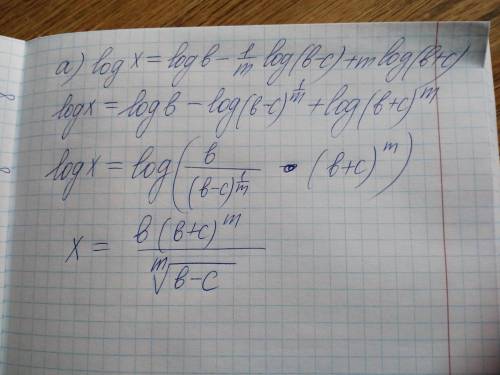 а) log x = log в - 1/m log(в-с) + m log(в+с)
log x = log в - log(в-с)^(1/m) + log(в+с)^m
log x = log( в / (в-с)^(1/m) · (в+с)^m )
x = в(в+с)^m / ᵐ√(в-с)